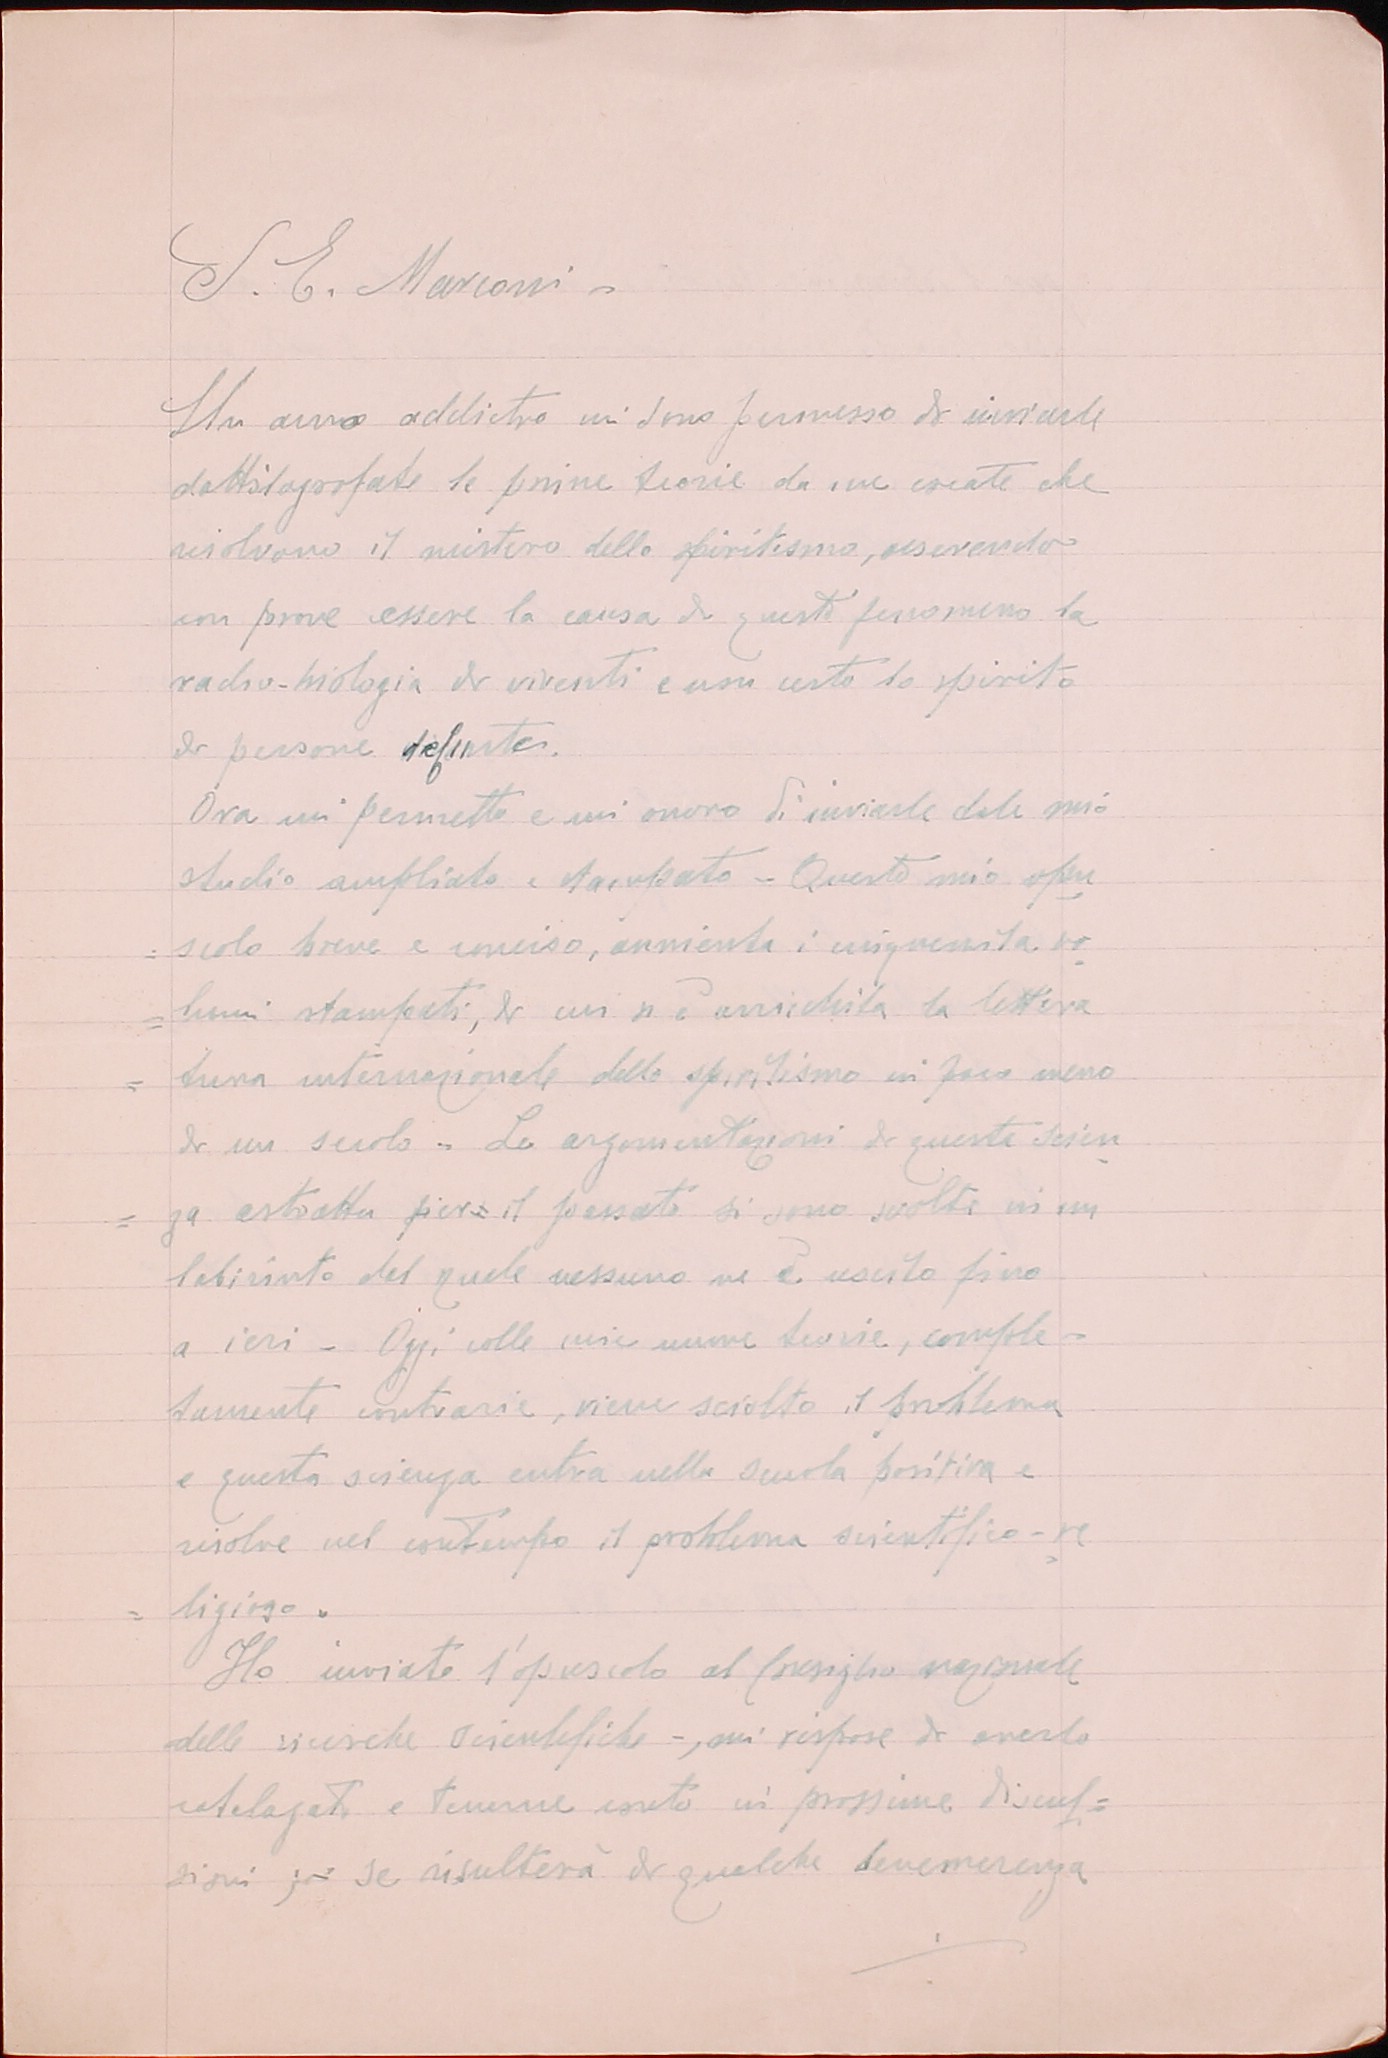 S. E. Marconi -
Un anno addietro mi sono permesso di inviarle
dattilografate le prime teorie da me create che
risolvono il mistero dello spiritismo, asserendo
con prove essere la causa di questo fenomeno la
radio-biologia di viventi e non certo lo spirito
di persone defunte.
Ora mi permetto e mi onoro di inviarle dale mio
studio ampliato e stampato - Questo mio opu
= scolo breve e conciso, annienta i cinquemila vo
= lumi stampati, di cui si è arricchita la lettera
= tura internazionale dello spiritismo in poco meno
di un secolo - Le argomentazioni di questa scien
= za astratta per il passato si sono svolte in un
labirinto del quale nessuno ne è uscito fino
a ieri - Oggi colle mie nuove teorie, comple-
tamente contrarie, viene sciolto il problema
e questa scienza entra nella scuola positiva e
risolve nel contempo il problema scientifico-re
= ligioso.
Ho inviato l'opuscolo al Consiglio nazionale
delle ricerche scientifiche -, mi rispose di averlo
catalogato e tenerne conto in prossime discus=
sioni se risulterà di qualche benemerenza